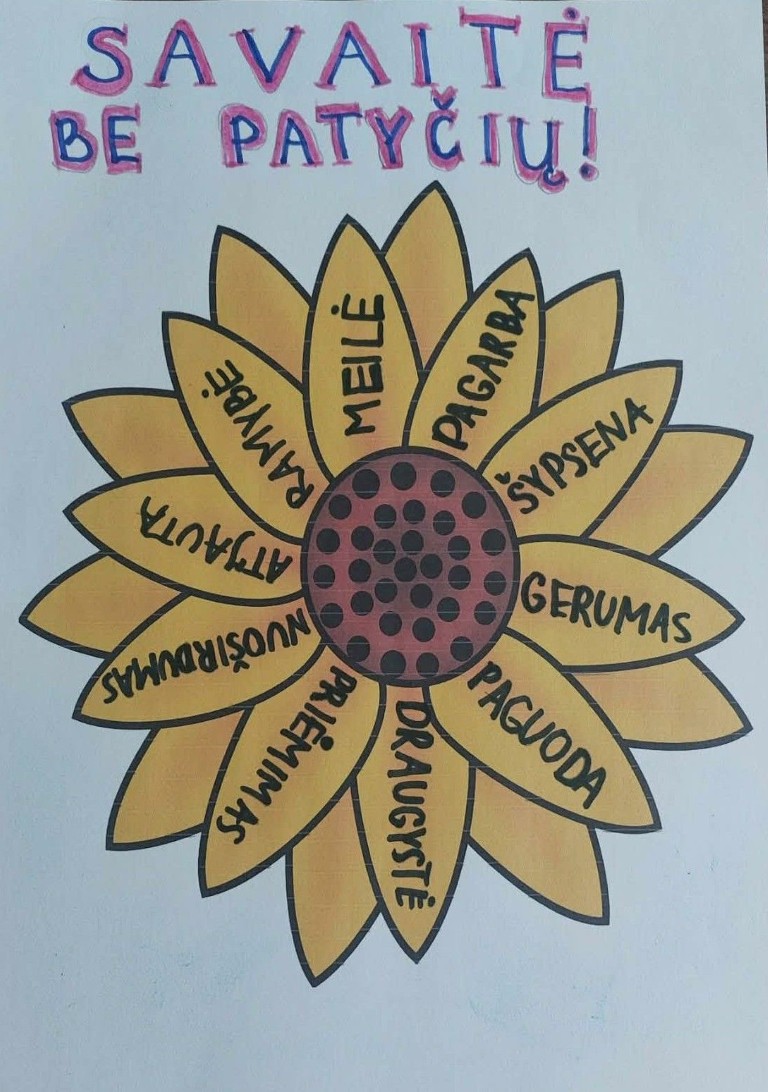 SAVAITĖ
BE PATYČIŲ!
MEILĖ
PAGARBA
ŠYPSENA
GERUMAS
PAGUODA
DRAUGYSTĖ
PRIĖMIMAS
NUOŠIRDUMAS
ATJAUTA
RAMYBĖ